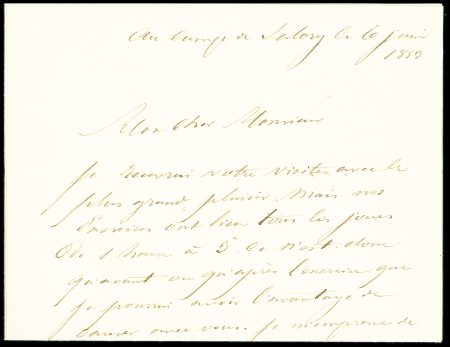 Au Camp de Satory le 6 juin
1853
Mon cher Monsieur
Je recevrai votre visite avec le
plus grand plaisir. Mais nos
Exercices ont lieu tous les jours
de 1 heure à 5. Ce n'est donc
qu'avant ou qu'après l'exercice que
je pourrai avoir l'avantage de
causer avec vous. Je m'empresse de